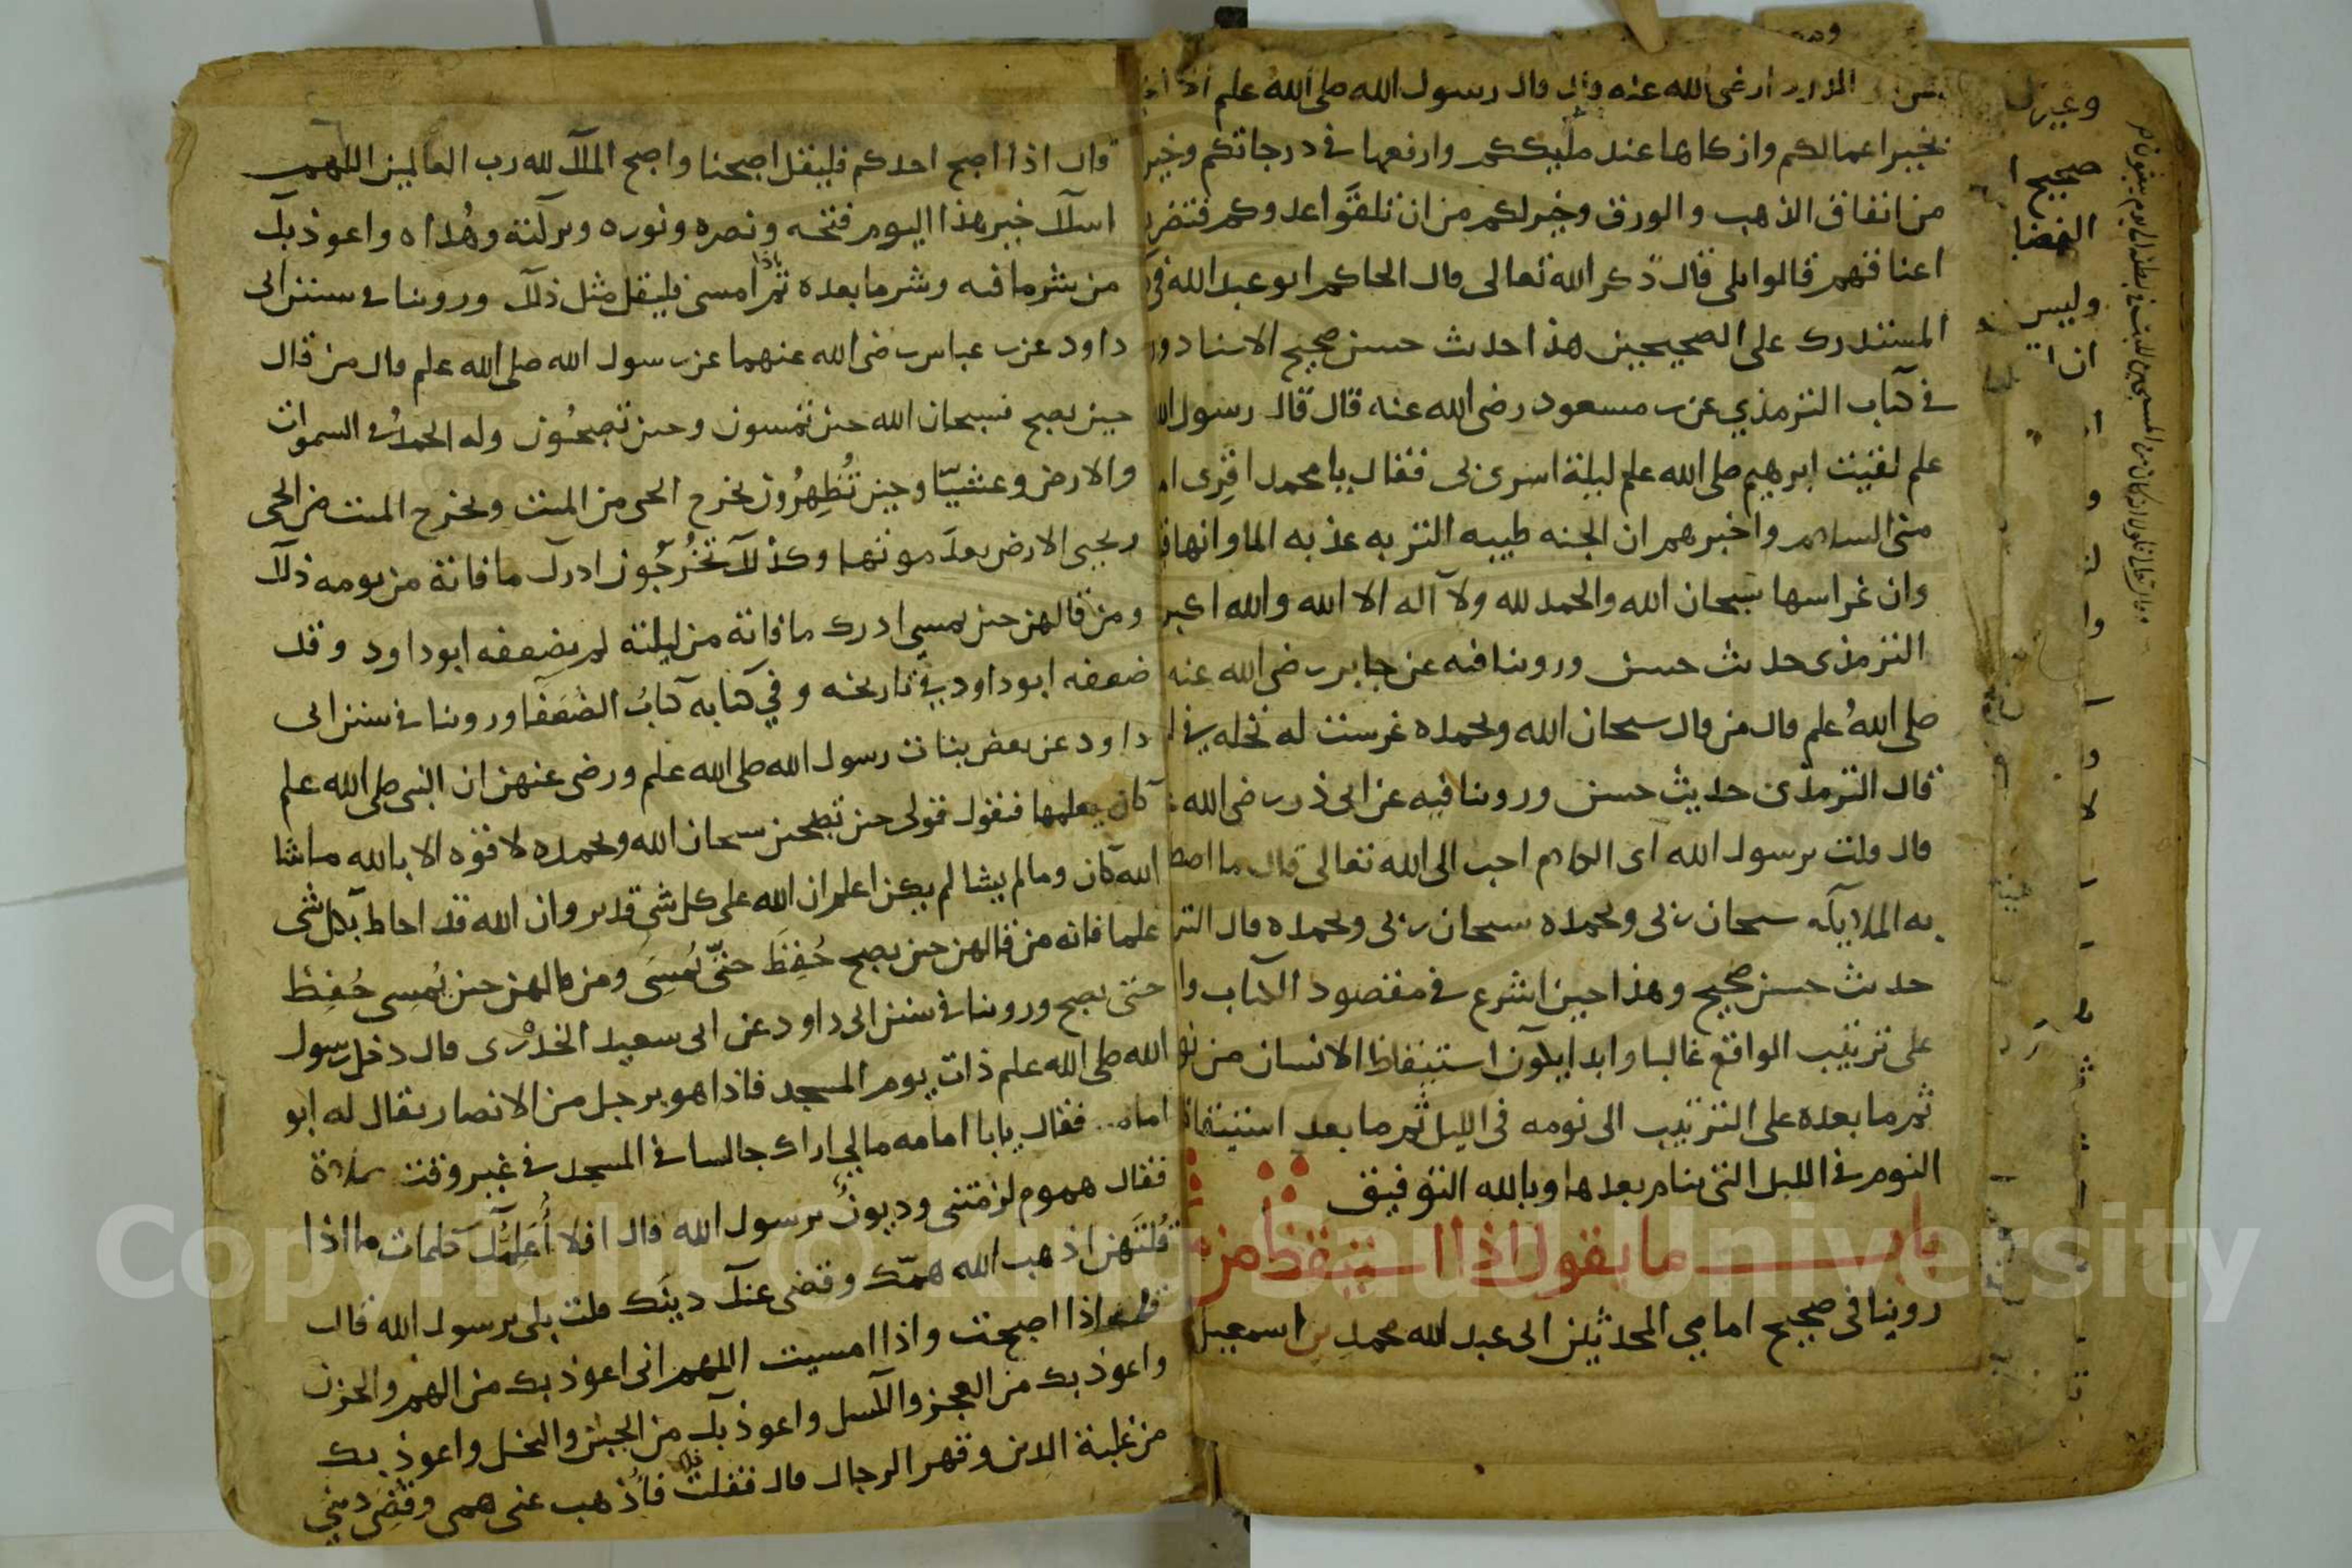 رضى الله عنه قال قال رسول الله صلى الله علم
بخير اعمالكم وازكاها عند مليككم وارفعها في درجاتكم وخير
من انفاق الذهب والورق وخير لكم من ان تلقوا عدوكم فتضر
اعناقهم قالوا بلى قال ذكر الله تعالى قال الحاكم ابو عبد الله في
المستدرك على الصحيحين هذا حديث حسن صحيح الاسناد ورو
في كتاب الترمذي عن بن مسعود رضى الله عنه قال قال رسول الله
علم لقيت ابرهيم صلى الله علم ليلة اسرى بى فقال يا محمد اقرى ا
منى السلام واخبرهم ان الجنه طيبه التربه عذبه الما وانها ق
وان غراسها سبحان الله والحمد لله ولا اله الا الله والله اكبر
الترمذى حديث حسن وروينا فيه عن جابر رضى الله عنه
صلى الله علم قال من قال سبحان الله وبحمده غرست له نخله في ا
قال الترمذى حديث حسن وروينا فيه عن ابى ذر رضى الله ع
قال قلت يرسول الله اى الكلام احب الى الله تعالى قال ما اصط
به الملايكه سبحان ربى وبحمده سبحان ربى وبحمده قال التر
حديث حسن صحيح وهذا حين اشرع في مقصود الكتاب وا
على ترتيب الواقع غالبا وابدا يكون استيقاظ الانسان من نو
ثم ما بعده على الترتيب الى نومه فى الليل ثم ما بعد استيقاظ
النوم في الليل التى ينام بعدها وبالله التوفيق
باب ما يقول اذا استيقظ من م
روينا فى صحيح امامي المحدثين ابى عبد الله محمد بن اسمعيل
وغيرك
صحيح ا
القضا
وليس
ان ا
قال اذا اصبح احدكم فليقل اصبحنا واصبح الملك لله رب العالمين اللهم
اسلك خير هذا اليوم فتحه ونصره ونوره وبركته وهداه واعوذ بك
من شر ما فيه وشر ما بعده ثم اذا امسى فليقل مثل ذلك وروينا في سنن ابى
داود عن بن عباس رضى الله عنهما عن رسول الله صلى الله علم قال من قال
حين يصبح فسبحان الله حين تمسون وحين تصبحون وله الحمد في السموات
والارض وعشيا وحين تظهرون يخرج الحى من الميت ويخرج الميت من الحى
ويحيى الارض بعد موتها وكذلك تخرجون ادرك ما فاته من يومه ذلك
ومن قالهن حين يمسى ادرك ما فاته من ليلته لم يضعفه ابو داود وقد
ضعفه ابو داود في تاريخه وفي كتابه كتاب الضعفا وروينا في سنن ابى
داود عن بعض بنات رسول الله صلى الله علم ورضى عنهن ان النبى صلى الله علم
كان يعلمها فنقول قولى حين تصبحين سبحان الله وبحمده لا قوه الا بالله ما شا
الله كان وما لم يشا لم يكن اعلم ان الله على كل شي قدير وان الله قد احاط بكل شى
علما فانه من قالهن حين يصبح حفظ حتى يمسى ومن قالهن حين يمسى حفظ
حتى يصبح وروينا في سنن ابى داود عن ابى سعيد الخدرى قال دخل رسول
الله صلى الله علم ذات يوم المسجد فاذا هو برجل من الانصار يقال له ابو
امامه فقال يابا امامه مالي اراك جالسا في المسجد في غير وقت صلاة
فقال هموم لزمتنى وديون يرسول الله قال افلا اعلمك كلمات ما اذا
قلتهن اذهب الله همك وقضى عنك دينك قلت بلى يرسول الله قال
قل اذا اصبحت واذا امسيت اللهم انى اعوذ بك من الهم والحزن
واعوذ بك من العجز والكسل واعوذ بك من الجبن والبخل واعوذ بك
من غلبة الدين وقهر الرجال قال فقلت ذلك فاذهب عنى همى وقضى دينى
Copyright © King Saud University